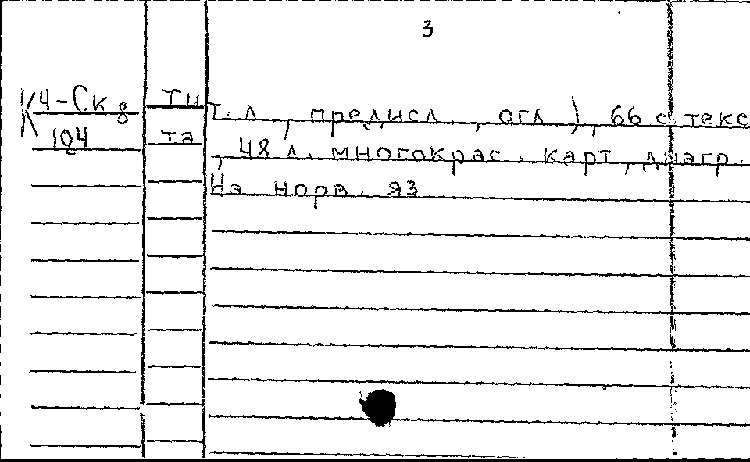 3
К4-Ск 8
104
Тит. л., предисл., огл), 66 с текс
та, 48 л. многокрас. карт, диагр.
На норв. яз